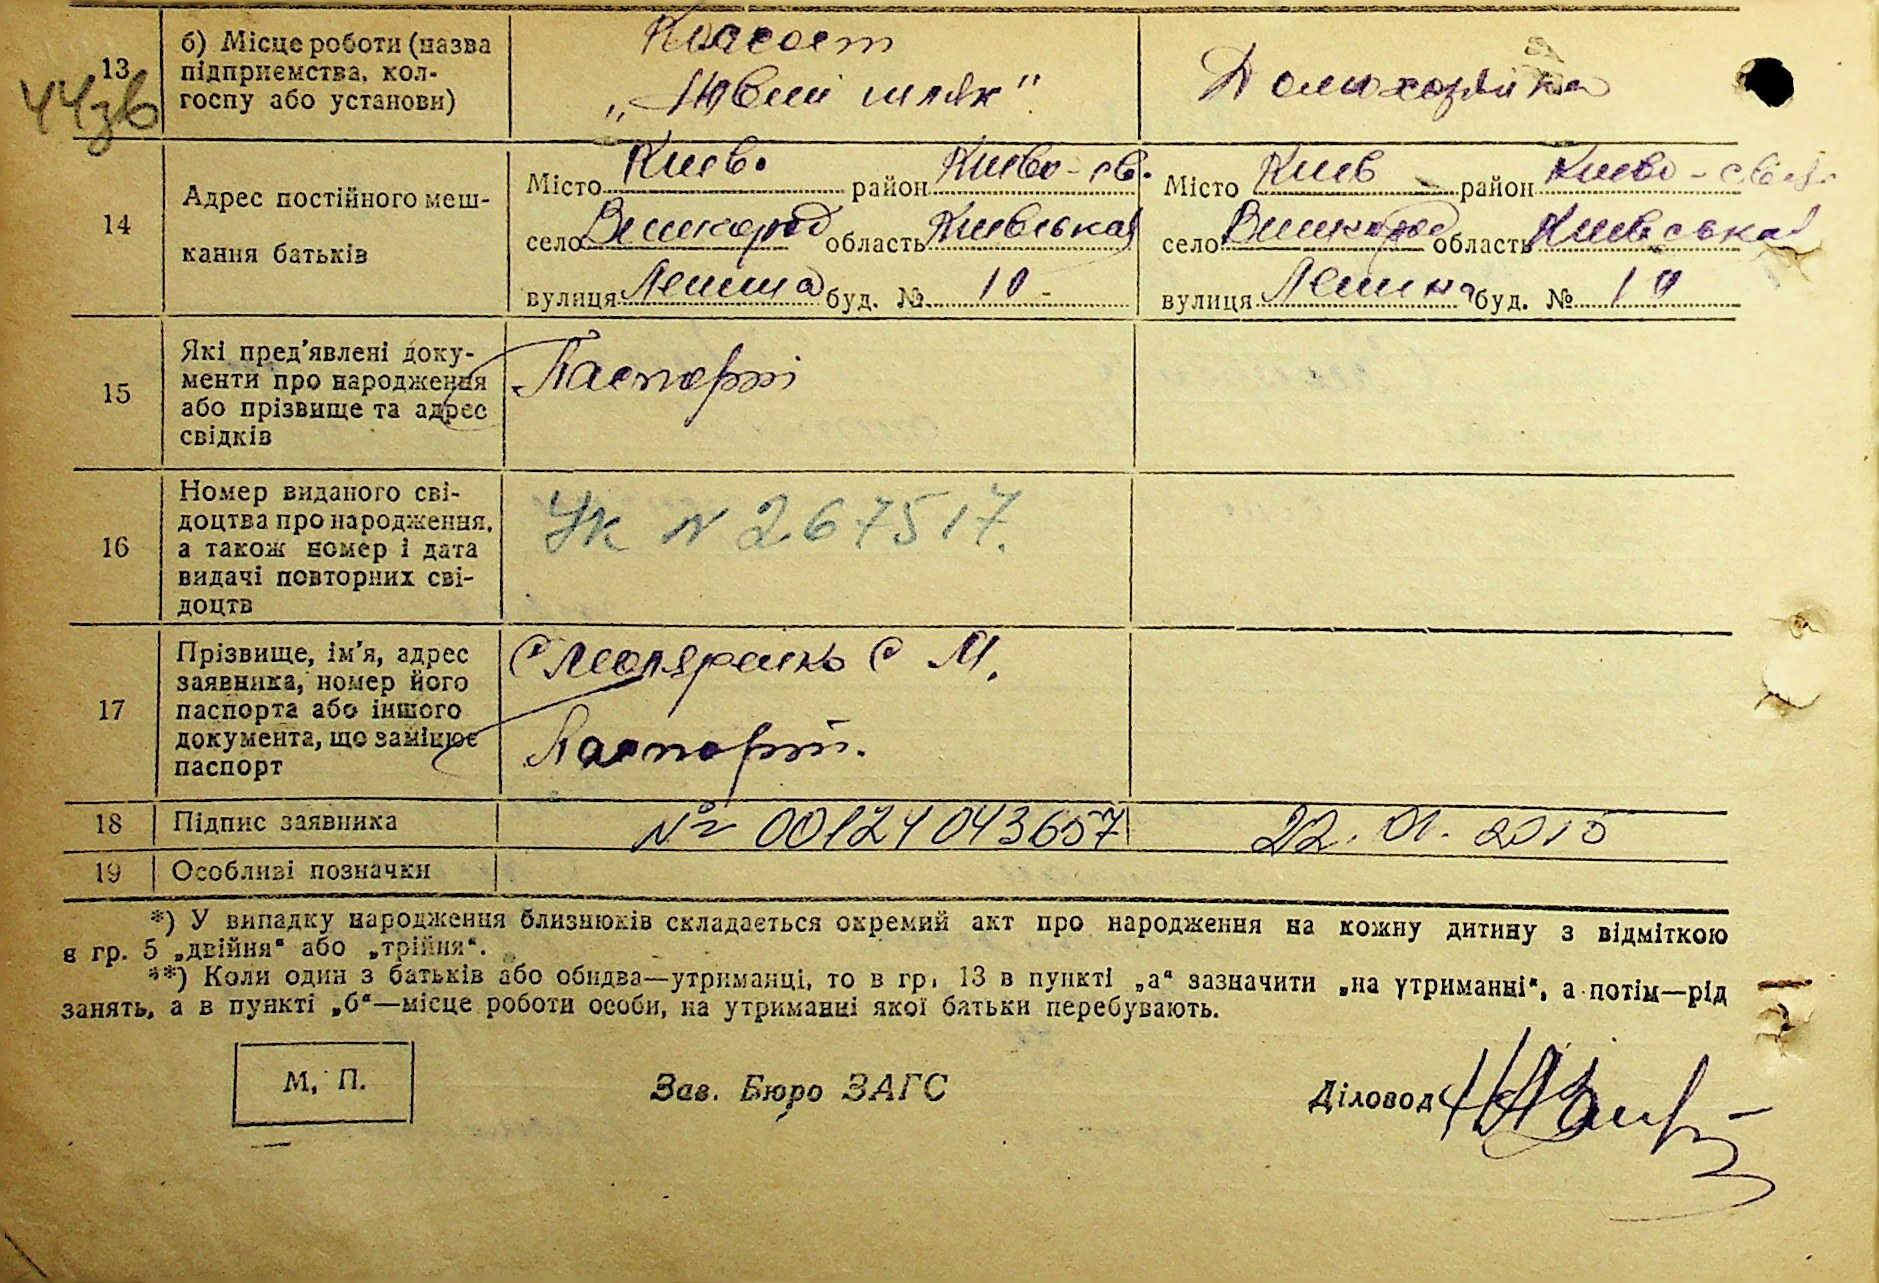 44зв
13
б) Місце роботи (назва
підприємства, кол-
госпу або установи)
Колгосп
„Новий шлях"
Домохозяйка
14
Адрес постійного меш-
кання батьків
Місто Киев. район Киево-св.
село Вишгород область Киевська
вулиця Леніна буд. № 10
Місто Киев район Киево-свят.
село Вишгород область Киевська
вулиця Леніна буд. № 10
15
Які пред'явлені доку-
менти про народження
або прізвище та адрес
свідків
Паспорті
16
Номер виданого сві-
доцтва про народження,
а також номер і дата
видачі повторних сві-
доцтв
Ук N 267517.
17
Прізвище, ім'я, адрес
заявника, номер його
паспорта або іншого
документа, що замінює
паспорт
С М.
Паспорт.
18
Підпис заявника
№ 00124043657
22.01.2015
19
Особливі позначки
*) У випадку народження близнюків складається окремий акт про народження на кожну дитину з відміткою
в гр. 5 „двійня“ або „трійня“.
**) Коли один з батьків або обидва—утриманці, то в гр. 13 в пункті „а“ зазначити „на утриманні“, а потім—рід
занять, а в пункті „б“—місце роботи особи, на утриманні якої батьки перебувають.
М. П.
Зав. Бюро ЗАГС
Діловод